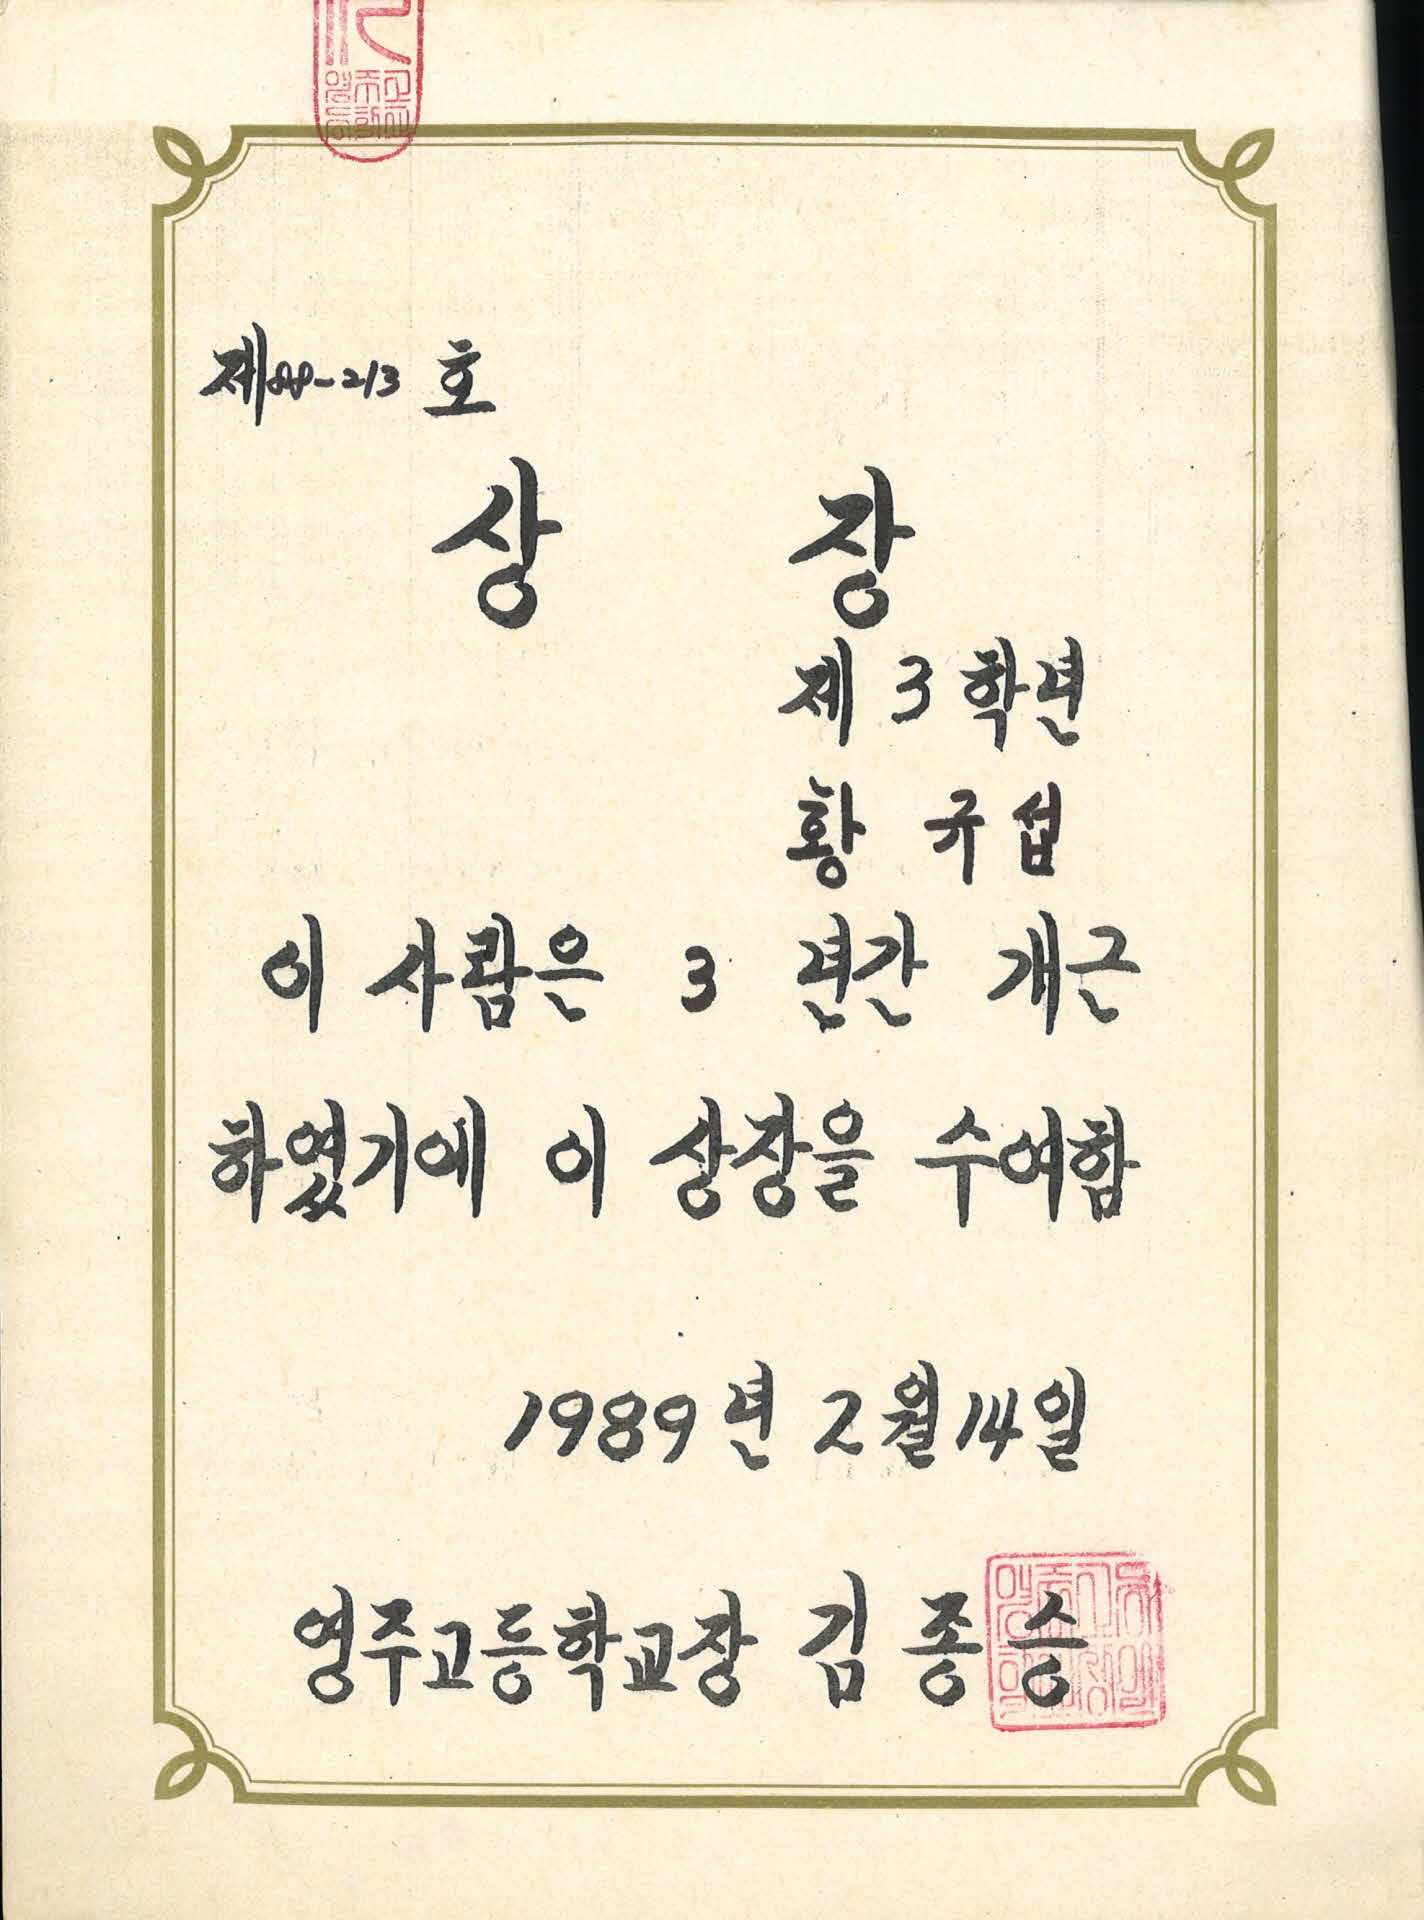 제88-213 호
상 장
제 3 학년
황 규섭
이 사람은 3 년간 개근
하였기에 이 상장을 수여함
1989년 2월 14일
영주고등학교장 김종승